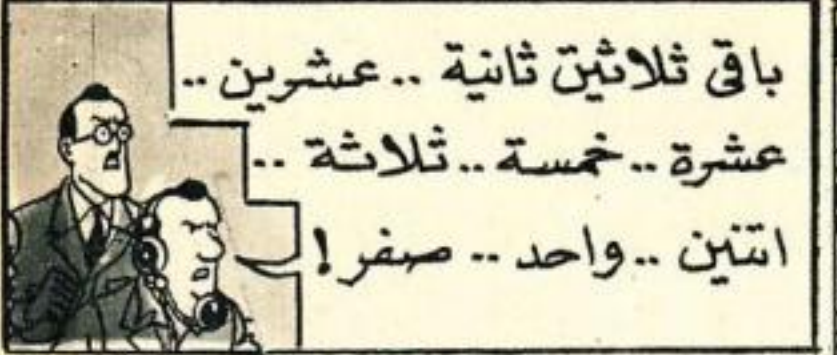 باقى ثلاثين ثانية .. عشرين ..
عشرة .. خمسة .. ثلاثة ..
اتنين .. واحد .. صفر !